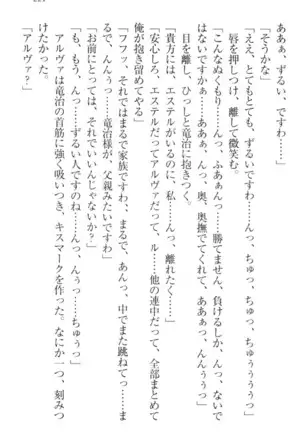 ああぁ、ずるい、ですわ……」
「そうかな」
「ええ、とても、とても、ずるいですわ……んっ、ちゅっ、ちゅっ、ちゅぅぅぅぅっ」
唇を押しつけ、離して微笑む。
「こんなぬくもり……んっ、ふあぁんっ……勝てません、負けるしか、んっ、ないではないですかぁ……ああぁっ、んっ、奥、奥撫でてくれて、ああぁっ、んんぅぅっ」
目を離し、ひしっと竜治に抱きつく。
「貴方には、エステルがいるのに、私……んっ、離れたく……」
「安心しろ、エステルだってアルヴァだって、ル……他の連中だって、全部まとめて俺が抱き留めてやる」
「フフッ、それではまるで家族ですわ、まる、あんっ、中でまた跳ねてっ……まるで、んんっ……竜治様が、父親みたいですわ」
「お前にとっては、それでいいんじゃないか？」
「も、もう、んっ……ずるい人ですのね……んっ、んぅっ……ちゅうっ」
「アルヴァ？」
アルヴァは竜治の首筋に強く吸いつき、キスマークを作った。なにか一つ、刻みつけたかった。